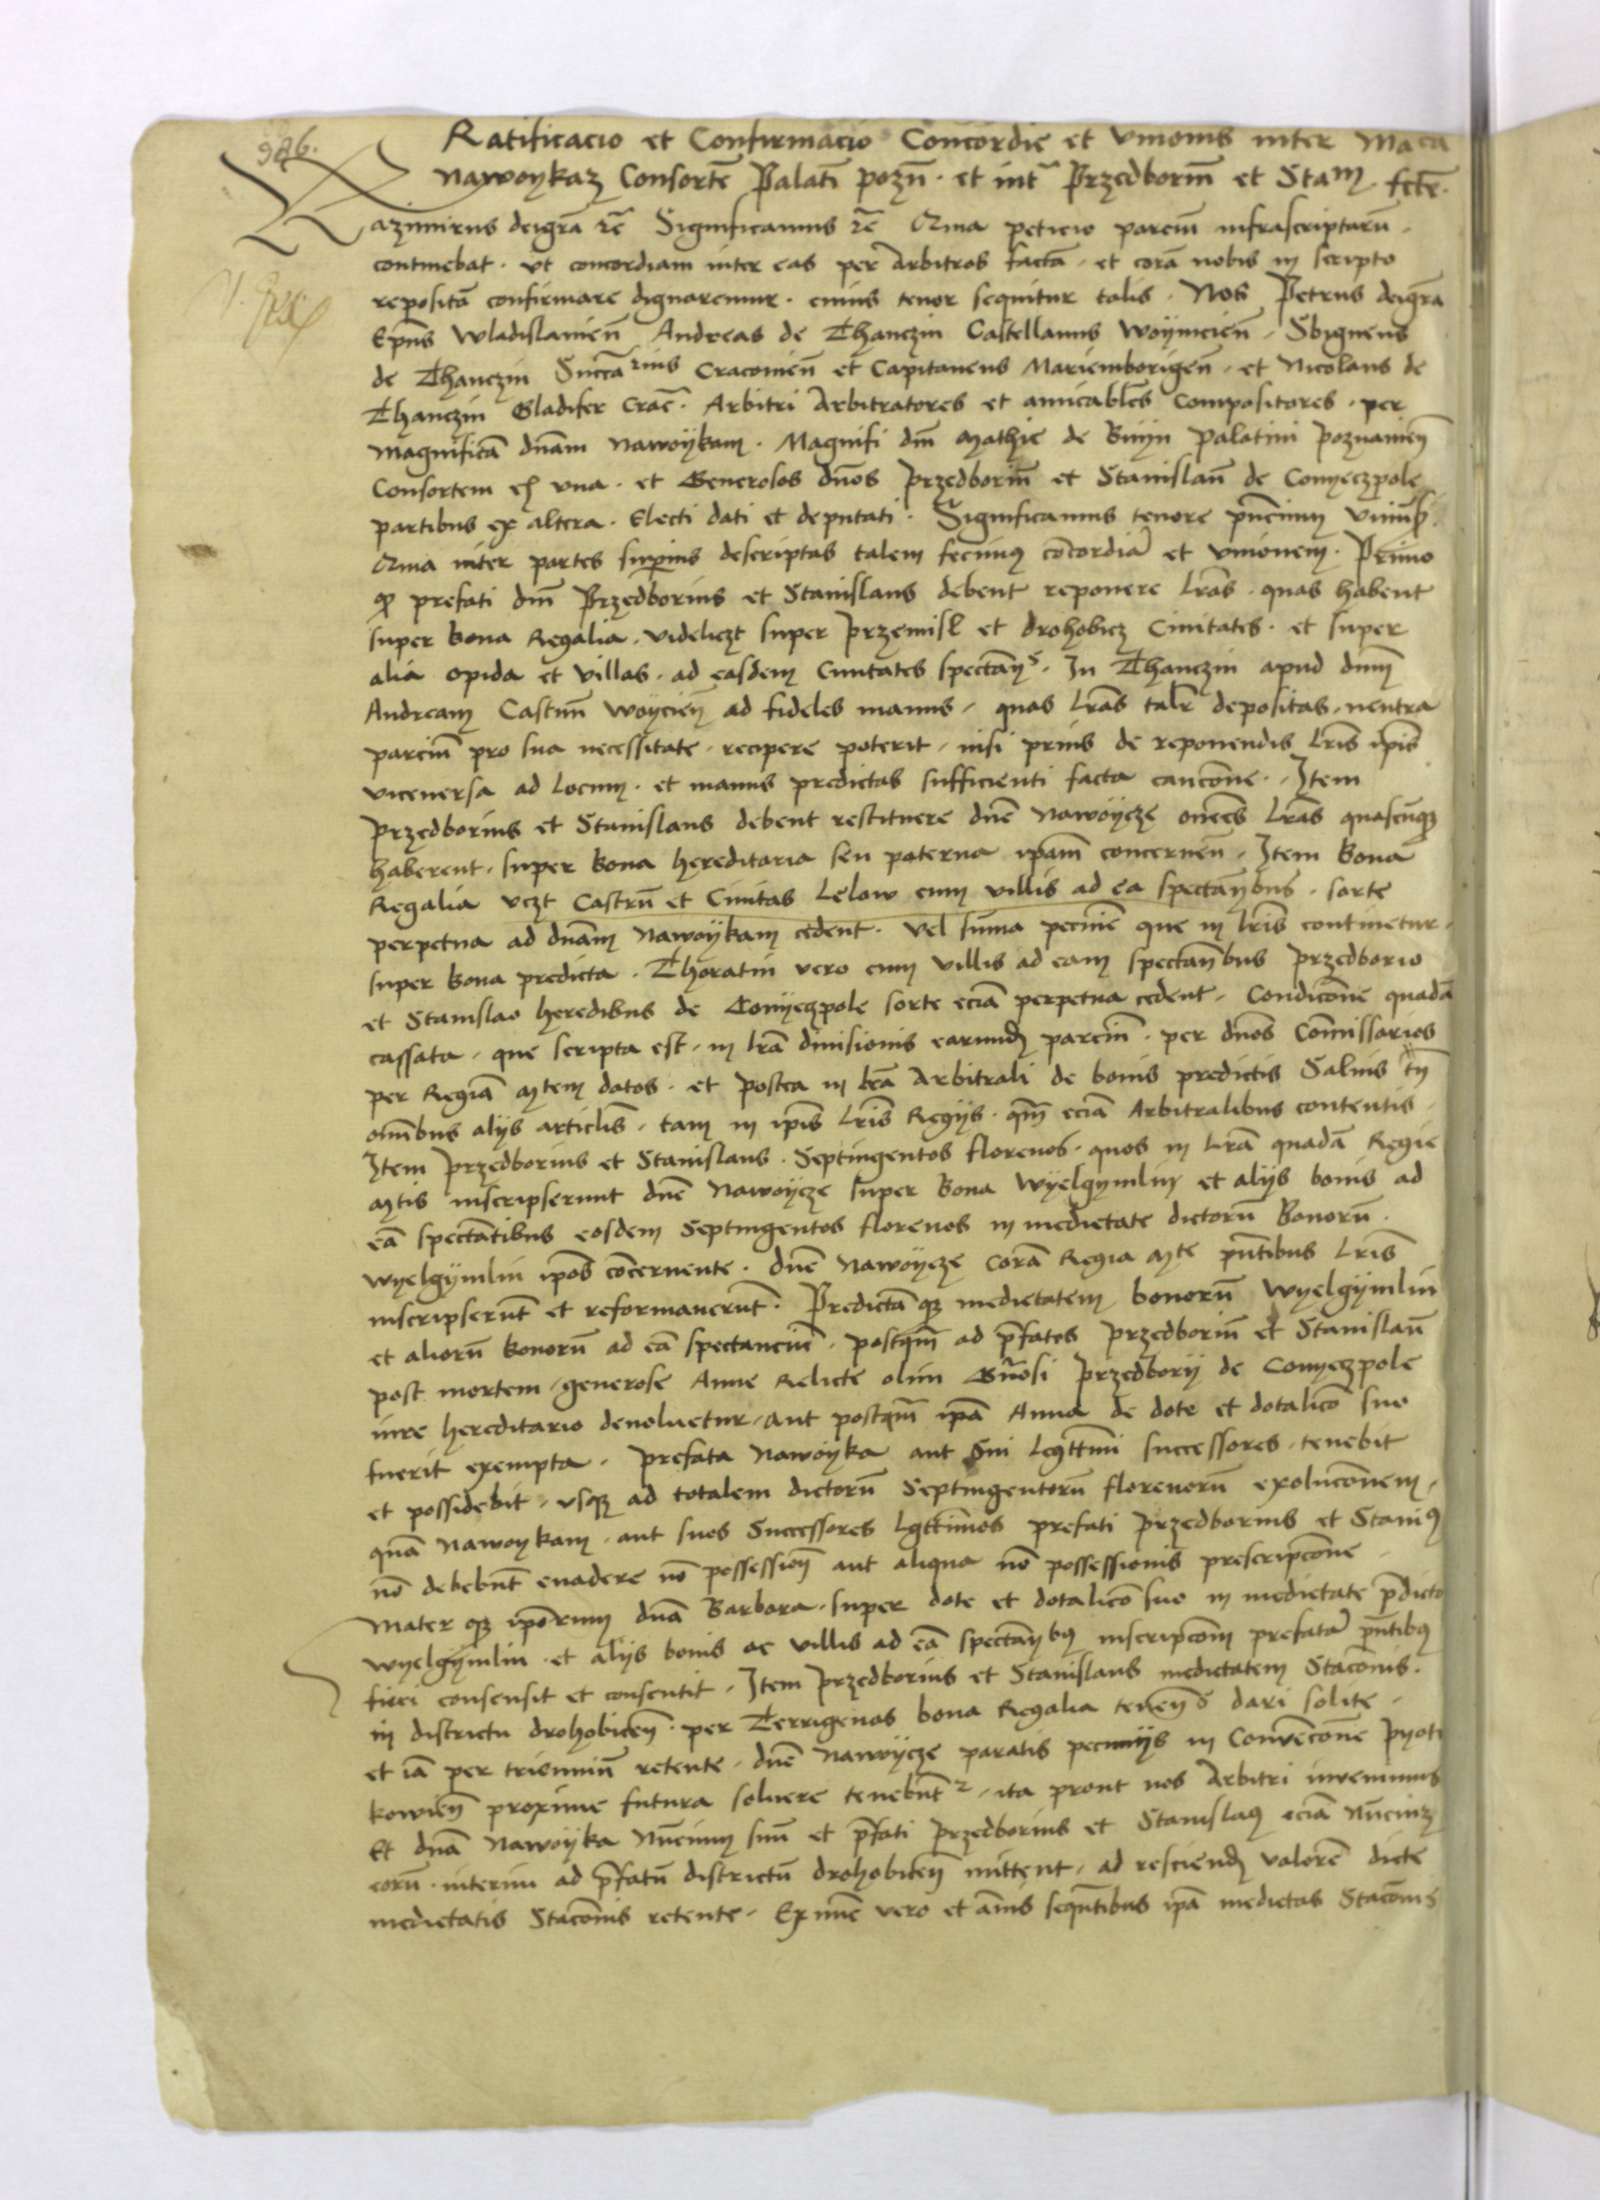 986.
Ratificacio et Confirmacio Concordie et vnionis inter
Nawoykaz Consortē Palatī pozn̄. et int̄ Przedboriū et Stam
Kazimirus deigrā rē Significamus rē Qma peticio parciū infrascriptarū.
continebat. vt concordiam inter eas per Arbitros factā. et corā nobis in scripto
repositā confirmare dignaremur. cuius tenor sequitur talis. Nos Petrus deigrā
Ep̄us Wladislauien̄ Andreas de Thanczin Castellanus Woyniciēn. Sbigneus
de Thanczin Succamrius Cracouien̄ et Capitaneus Mariemborigen̄. et Nicolaus de
Thanczin Gladifer Crac̄. Arbitri Arbitratores et amicables Compositores. per
magnificā dnām nawoykam. Magnifi dm̄ Mathie de Bnyn Palatini Poznanien̄
Consortem ex vna. et Generosos dnōs Przedboriū et Stanislaū de Conyeczpole
partibus ex altera. Electi dati et deputati. Significamus tenore pn̄cium
Qma inter partes superius descriptas talem fecimus concordiā et vnionem. Primo
qȝ prefati dm̄ Przedborius et Stanislaus debent reponere lr̄as. quas habent
super bona Regalia. videliczt super Przemisl et drohobicz Ciuitates. et super
alia opida et villas. ad easdem Ciuitates spectan̄s. In Thanczin apud dnm̄
Andream Castnū woycien̄ ad fideles manus. quas lr̄as talr̄ depositas. neutra
parciū pro sua necessitate. recipere poterit. nisi prius de reponendis lr̄is ip̄is
viceuersa ad locum. et manus predictas sufficienti facta caucōne. Item
Przedborius et Stanislaus debent restituere dnē Nawoycze om̄es lr̄as quascūqȝ
haberent. super bona hereditaria seu paterna ip̄am concernen̄. Item bona
Regalia vczt Castrū et Ciuitas Lelow cum villis ad ea spectan̄bus. sorte
perpetua ad dnām Nawoykam cedent. vel sum̄a pecunie que in lr̄is continetur.
super bona predicta. Thoratin vero cum villis ad eam spectan̄bus Przedborio
et Stanislao heredibus de Conyeczpole sorte eciā perpetua cedent. Condicōne quadā
cassata. que scripta est. in lr̄a diuisionis earundē parciū. per dnōs Com̄issarios
per Regiā Mtem datos. et postea in lr̄a Arbitrali de bonis predictis Saluis tn̄
om̄ibus alijs articlis. tam in ip̄is lr̄is Regijs. qm̄ eciā Arbitralibus contentis.
Item Przedborius et Stanislaus. Septingentos florenos. quos in lr̄a quadā Regie
Mtis inscripserunt dnē Nawoycze super bona Wyelgymlin et alijs bonis ad
eā spectātibus eosdem Septingentos florenos in medietate dictorū Bonorū.
Wyelgymlin ip̄os concernente. dnē Nawoycze Corā Regia Mte pn̄tibus lr̄is
inscripserūt et reformauerūt. Predictā qȝ medietatem bonorū Wyelgymlin
et aliorū bonorū ad eā spectanciū. postqm̄ ad p̄fatos Przedboriū et Stanislaū
post mortem. generose Anne Relicte olim Gn̄osi Przedborij de Conyeczpole
iure hereditario deuoluetur. aut postqm̄ ip̄a Anna de dote et dotalicō suo
fuerit exempta. prefata Nawoyka aut Sui legttimi successores. tenebit
et possidebit. vsqȝ ad totalem dictorū Septingentorū florenorū exolucōnem.
quā Nawoykam. aut suos Successores lgttimos prefati Przedborius et Stanius
nō debebūt euadere nō possession̄ aut aliqua nō possessionis prescripcōne
Mater qȝ ip̄orum dnā Barbara. super dote et dotalicō suo in medietate p̄dicto
Wyelgymlin. et alijs bonis ac villis ad eā spectan̄bus inscripcōm prefatā pn̄tibus
fieri consensit et consentit. Item Przedborius et Stanislaus medietatem Stacōnis.
in districtu drohobicen̄. per Terrigenas bona Regalia tenen̄s dari solite.
et iā per trienniū retente. dnē Nawoycze paratis pecunijs in Conuencōne Pyotr
kowien̄ proxime futura soluere tenebūtr. ita prout nos Arbitri inuenimus
Et dnā Nawoyka Nūcium suū et p̄fati Przedborius et Stanislaus eciā Nūcium
eorū. interim ad p̄fatū districtū drohobicen̄ mittent. ad resciend̄ valorē dicte
medietatis Stacōnis retente. Ex nūc vero et annis sequn̄tibus ip̄a medietas Stacōnis